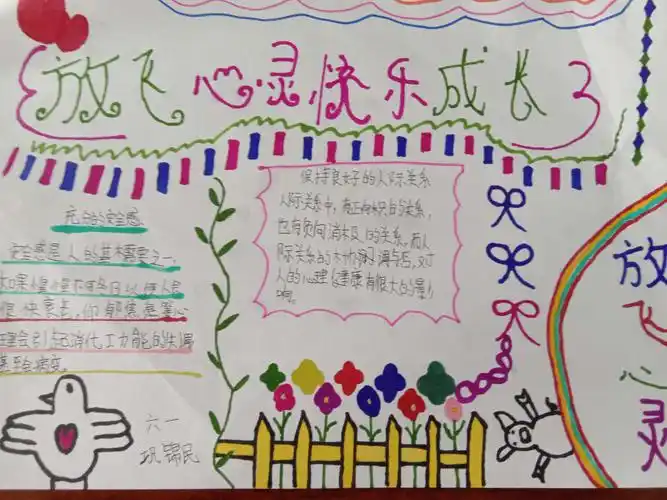 放飞心灵快乐成长
充给安全感
安全感是人的基本需要之一,
心
理会引起消化工力能的失调
甚至病变。
六一
巩锦民
保持良好的人际关系
人际关系中,有正向积极的关系,
也有负向消极的关系,而人
际关系的协调与否,对
人的心理健康有很大的影
响。
放
飞
心
灵